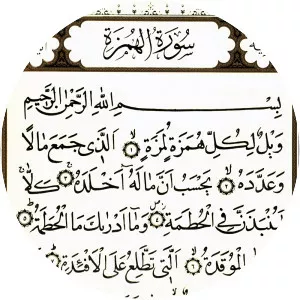 سُورَةُ الْهُمَزَةِ
بِسْمِ اللهِ الرَّحْمٰنِ الرَّحِيمِ
وَيْلٌ لِكُلِّ هُمَزَةٍ لُمَزَةٍ ۝١ اَلَّذِي جَمَعَ مَالًا
وَعَدَّدَهُ ۝٢ يَحْسَبُ اَنَّ مَالَهُ اَخْلَدَهُ ۝٣ كَلَّا
لَيُنْبَذَنَّ فِي الْحُطَمَةِ ۝٤ وَمَا اَدْرٰيكَ مَا الْحُطَمَةُ ۝٥
الْمُوقَدَةُ ۝٦ اَلَّتِي تَطَّلِعُ عَلَى الْاَفْئِدَةِ ۝٧